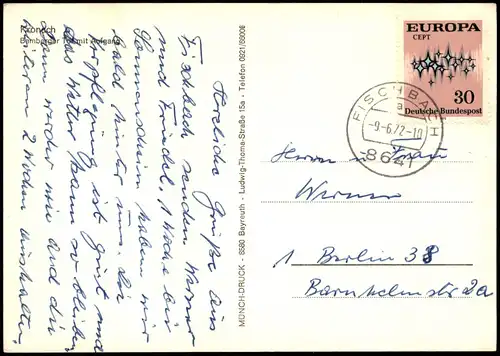 Kronach
Bamberger Tor mit Aufgang
Herzliche Grüße aus
Fischbach senden Werner
und Friedel. 1 Woche bei
Sonnenschein haben wir
bald hinter uns. Die
Verpflegung ist gut und
das Wetter kann so bleiben
dann werden wir auch die
weiteren 2 Wochen aushalten.
MÜNCH-DRUCK - 8580 Bayreuth - Ludwig-Thoma-Straße 15a - Telefon 0921/
EUROPA
CEPT
30
Deutsche Bundespost
FISCHBACH
a
-9.-6.72-18
8641
Herrn u. Frau
Werner
1 Berlin 38
Barnhelmstr 2a